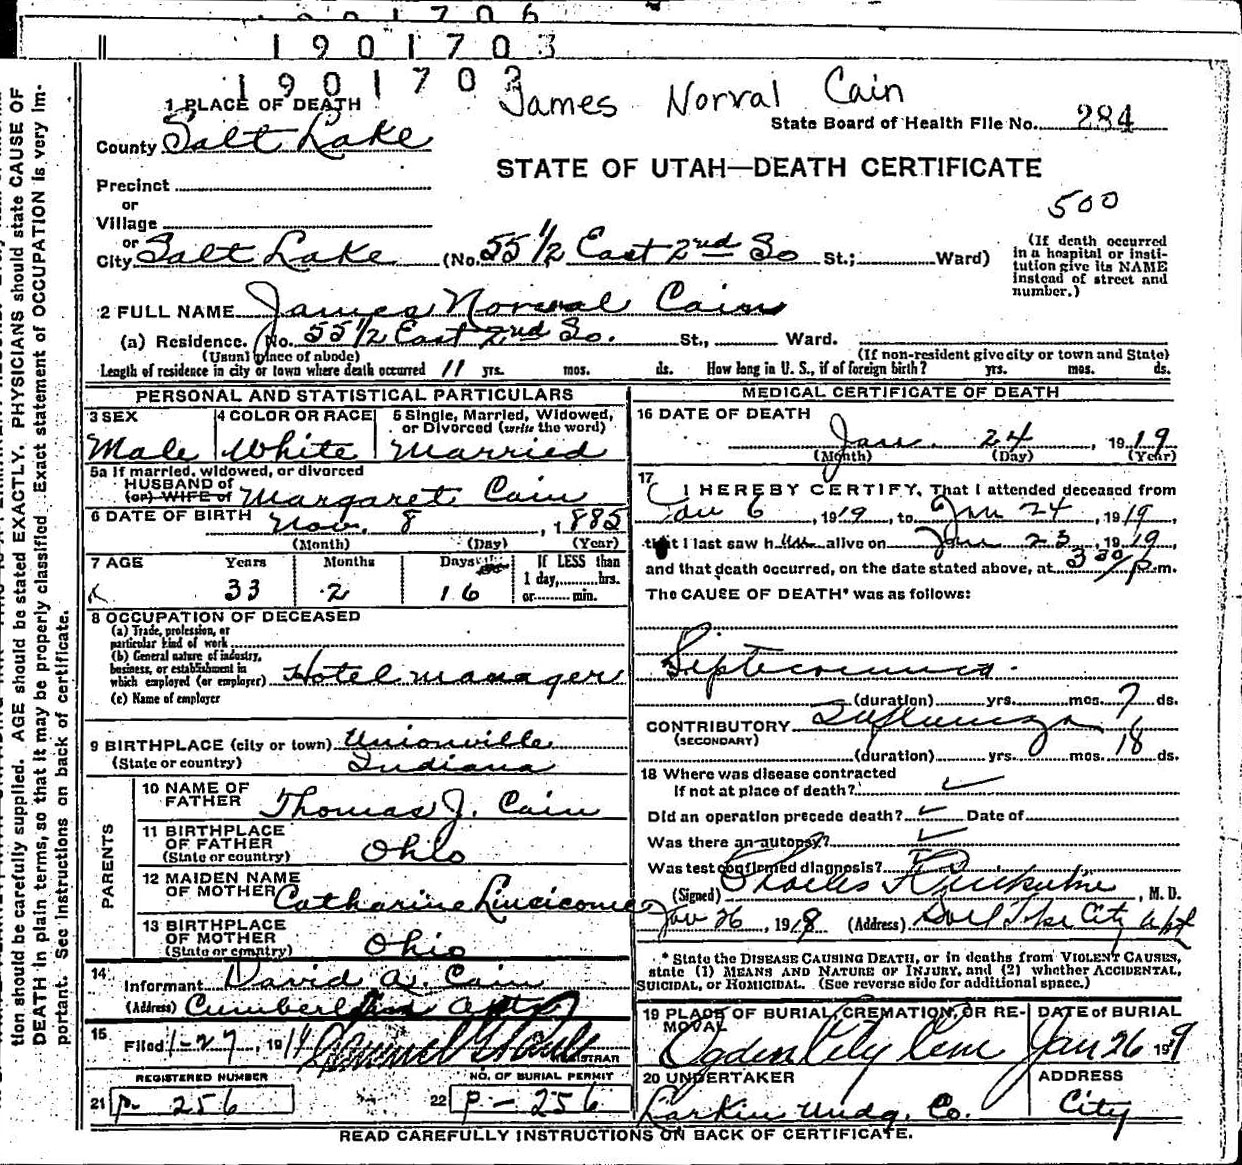 1901706
1901703
1901703
James Norval Cain
1 PLACE OF DEATH
State Board of Health File No. 284
County Salt Lake
STATE OF UTAH—DEATH CERTIFICATE
Precinct
or
500
Village
or
City Salt Lake (No. 55 1/2 East 2nd So St.; Ward)
(If death occurred
in a hospital or insti-
tution give its NAME
instead of street and
number.)
2 FULL NAME James Norval Cain
(a) Residence. No. 55 1/2 East 2nd So. St., Ward.
(Usual place of abode) (If non-resident give city or town and State)
Length of residence in city or town where death occurred 11 yrs. mos. ds. How long in U. S., if of foreign birth? yrs. mos. ds.
PERSONAL AND STATISTICAL PARTICULARS
3 SEX
Male
4 COLOR OR RACE
White
5 Single, Married, Widowed,
or Divorced (write the word)
Married
5a If married, widowed, or divorced
HUSBAND of
(or) WIFE of Margaret Cain
6 DATE OF BIRTH Nov. 8, 1885
(Month) (Day) (Year)
7 AGE Years Months Days If LESS than
1 day, hrs.
33 2 16 or min.
8 OCCUPATION OF DECEASED
(a) Trade, profession, or
particular kind of work
(b) General nature of industry,
business, or establishment in
which employed (or employer) Hotel manager
(c) Name of employer
9 BIRTHPLACE (city or town) Unionville
(State or country) Indiana
PARENTS
10 NAME OF
FATHER Thomas J. Cain
11 BIRTHPLACE
OF FATHER
(State or country) Ohio
12 MAIDEN NAME
OF MOTHER Catharine Linicome
13 BIRTHPLACE
OF MOTHER
(State or country) Ohio
14
Informant David A. Cain
(Address) Cumberland Apts
15
Filed 1-27, 19
REGISTRAR
REGISTERED NUMBER
21 P- 256
NO. OF BURIAL PERMIT
22 P- 256
MEDICAL CERTIFICATE OF DEATH
16 DATE OF DEATH
Jan. 24, 1919
(Month) (Day) (Year)
17
I HEREBY CERTIFY, That I attended deceased from
Jan 6, 1919, to Jan 24, 1919,
that I last saw him alive on Jan 23, 1919,
and that death occurred, on the date stated above, at 3 30/p.m.
The CAUSE OF DEATH* was as follows:
Septicemia.
(duration) yrs. mos. 7 ds.
CONTRIBUTORY Influenza
(SECONDARY)
(duration) yrs. mos. 18 ds.
18 Where was disease contracted
If not at place of death?
Did an operation precede death? Date of
Was there an autopsy?
Was test confirmed diagnosis?
(Signed) Charles, M. D.
Jan 26, 1919 (Address) Salt Lake City
* State the DISEASE CAUSING DEATH, or in deaths from VIOLENT CAUSES,
state (1) MEANS AND NATURE OF INJURY, and (2) whether ACCIDENTAL,
SUICIDAL, or HOMICIDAL. (See reverse side for additional space.)
19 PLACE OF BURIAL, CREMATION, OR RE-
MOVAL
Ogden City Cem
DATE of BURIAL
Jan 26 1919
20 UNDERTAKER
Larkin Undg. Co.
ADDRESS
City
READ CAREFULLY INSTRUCTIONS ON BACK OF CERTIFICATE.
tion should be carefully supplied. AGE should be stated EXACTLY. PHYSICIANS should state CAUSE OF
DEATH in plain terms, so that it may be properly classified. Exact statement of OCCUPATION is very im-
portant. See instructions on back of certificate.